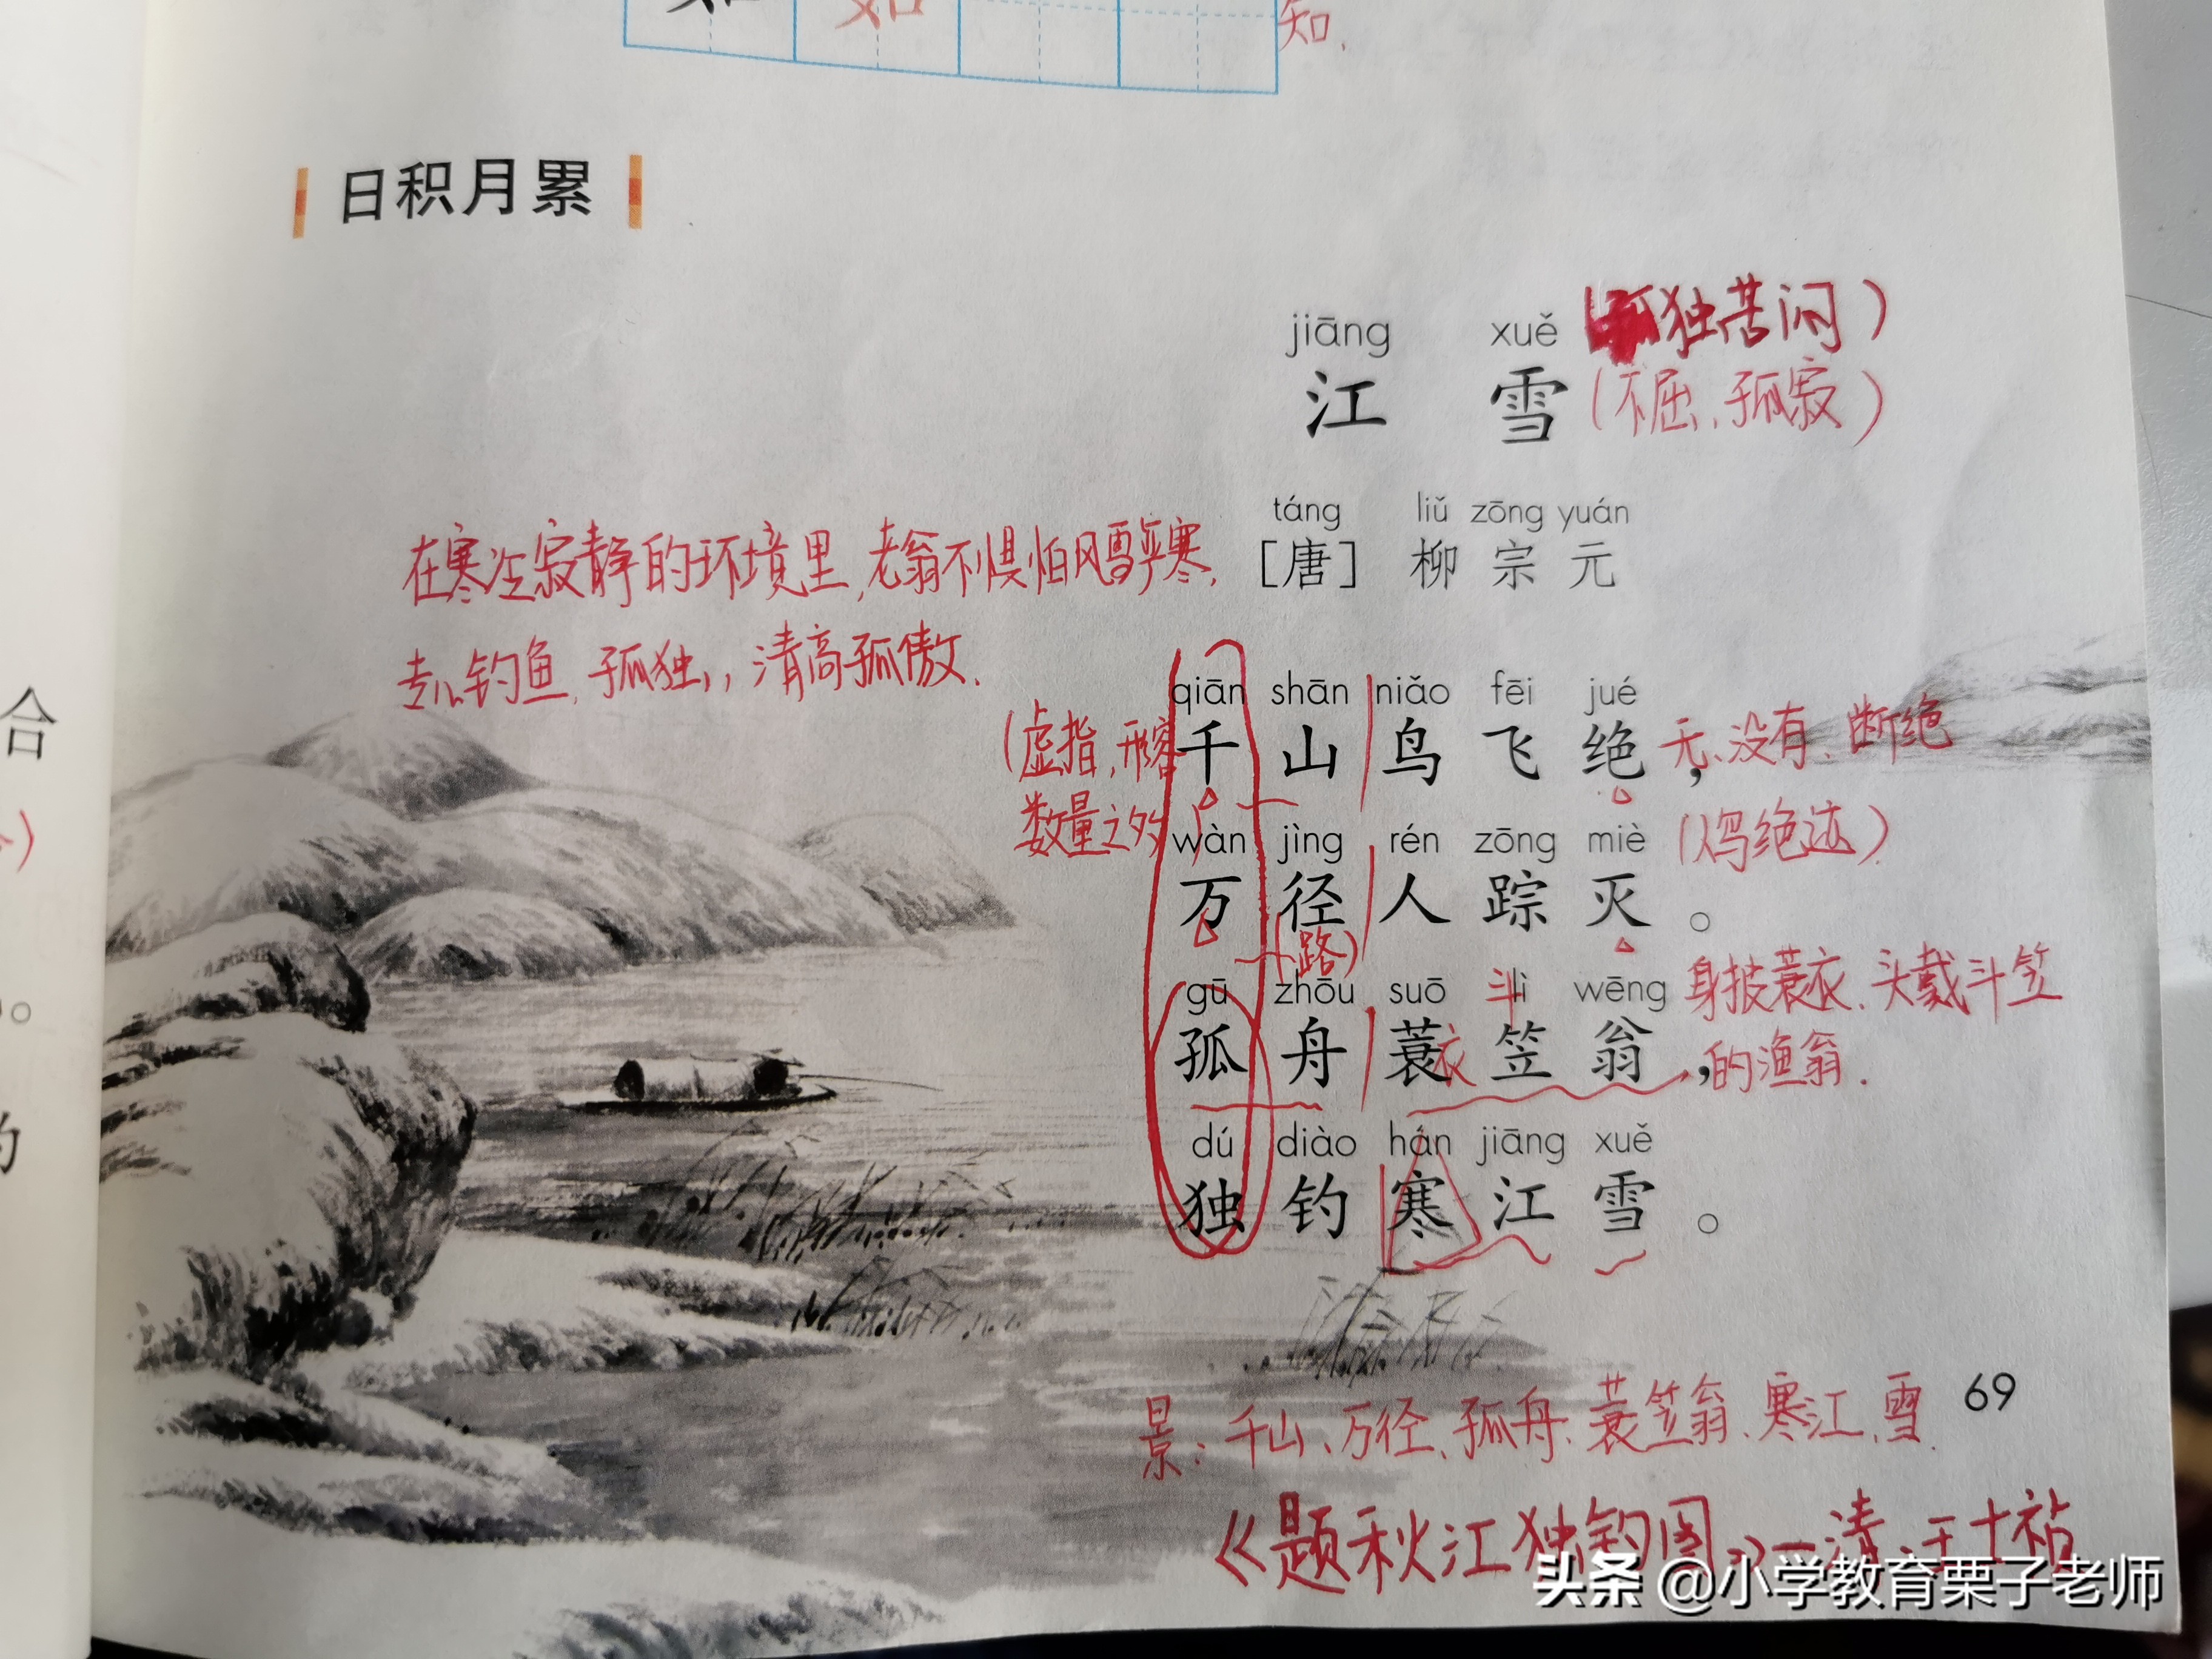 知.
日积月累
jiāng xuě
(孤独苦闷)
江 雪
(不屈、孤寂)
táng liǔ zōng yuán
[唐] 柳 宗 元
在寒冷寂静的环境里,老翁不惧怕风雪严寒,
专心钓鱼,孤独,,清高孤傲.
qiān shān niǎo fēi jué
千 山 鸟 飞 绝,
无、没有、断绝
(虚指,形容
数量之多)
wàn jìng rén zōng miè
(鸟绝迹)
万 径 人 踪 灭。
(路)
gū zhōu suō lì wēng
斗
身披蓑衣、头戴斗笠
孤 舟 蓑 笠 翁,
衣
的渔翁.
dú diào hán jiāng xuě
独 钓 寒 江 雪。
69
景:千山、万径、孤舟、蓑笠翁、寒江、雪.
《题秋江独钓图》—清.王士祯
头条 @小学教育栗子老师
合